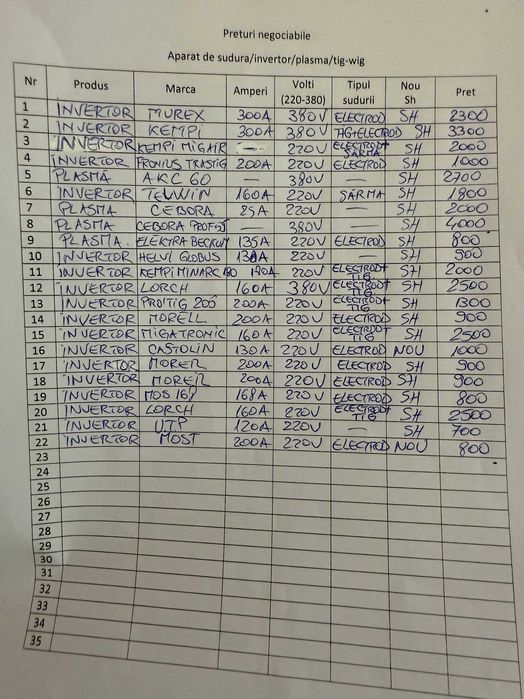 Preturi negociabile
Aparat de sudura/invertor/plasma/tig-wig
Nr Produs Marca Amperi Volti (220-380) Tipul sudurii Nou Sh Pret
1 INVERTOR MUREX 300A 380V ELECTROD SH 2300
2 INVERTOR KEMPI 300A 380V TIG+ELECTROD SH 3300
3 INVERTOR KEMPI MIGAIR — 220V ELECTROD+ SARMA SH 2000
4 INVERTOR FRONIUS TRASTIG 200A 220V ELECTROD SH 1000
5 PLASMA AKC 60 — 380V SH 2700
6 INVERTOR TELWIN 160A 220V SARMA SH 1800
7 PLASMA CEBORA 25A 220V — SH 2000
8 PLASMA CEBORA — 380V — SH 4000
9 PLASMA. ELEKTRA BECKUM 135A 220V ELECTROD SH 800
10 INVERTOR HELVI GLOBUS 220V — SH 900
11 INVERTOR KEMPI MINARC 190A 220V ELECTROD+ TIG SH 2000
12 INVERTOR LORCH 160A 380V ELECTROD SH 2500
13 INVERTOR PROTIG 200 200A 220V ELECTROD+ TIG SH 1300
14 INVERTOR MORELL 200A 220V ELECTROD SH 900
15 INVERTOR MIGATRONIC 160A 220V ELECTROD+ TIG SH 2500
16 INVERTOR CASTOLIN 130A 220V ELECTROD NOU 1000
17 INVERTOR MORER 200A 220V ELECTROD SH 900
18 INVERTOR MORER 200A 220V ELECTROD SH 900
19 INVERTOR MOS 168 168A 220V ELECTROD SH 800
20 INVERTOR LORCH 160A 220V ELECTROD+ TIG SH 2500
21 INVERTOR UTP 120A 220V — SH 700
22 INVERTOR MOST 200A 220V ELECTROD NOU 800
23
24
25
26
27
28
29
30
31
32
33
34
35